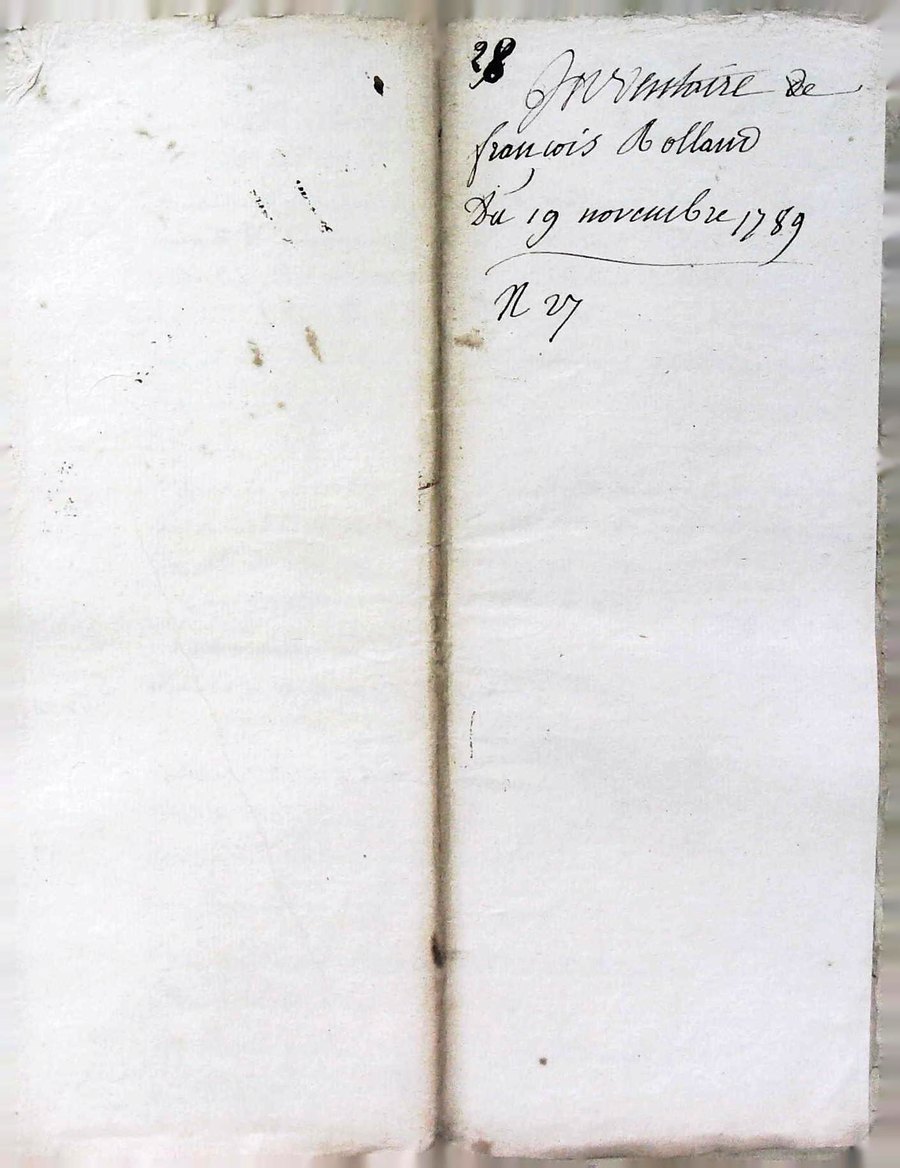 28
Invventaire de
françois Rolland
Du 19 novembre 1789
N 27